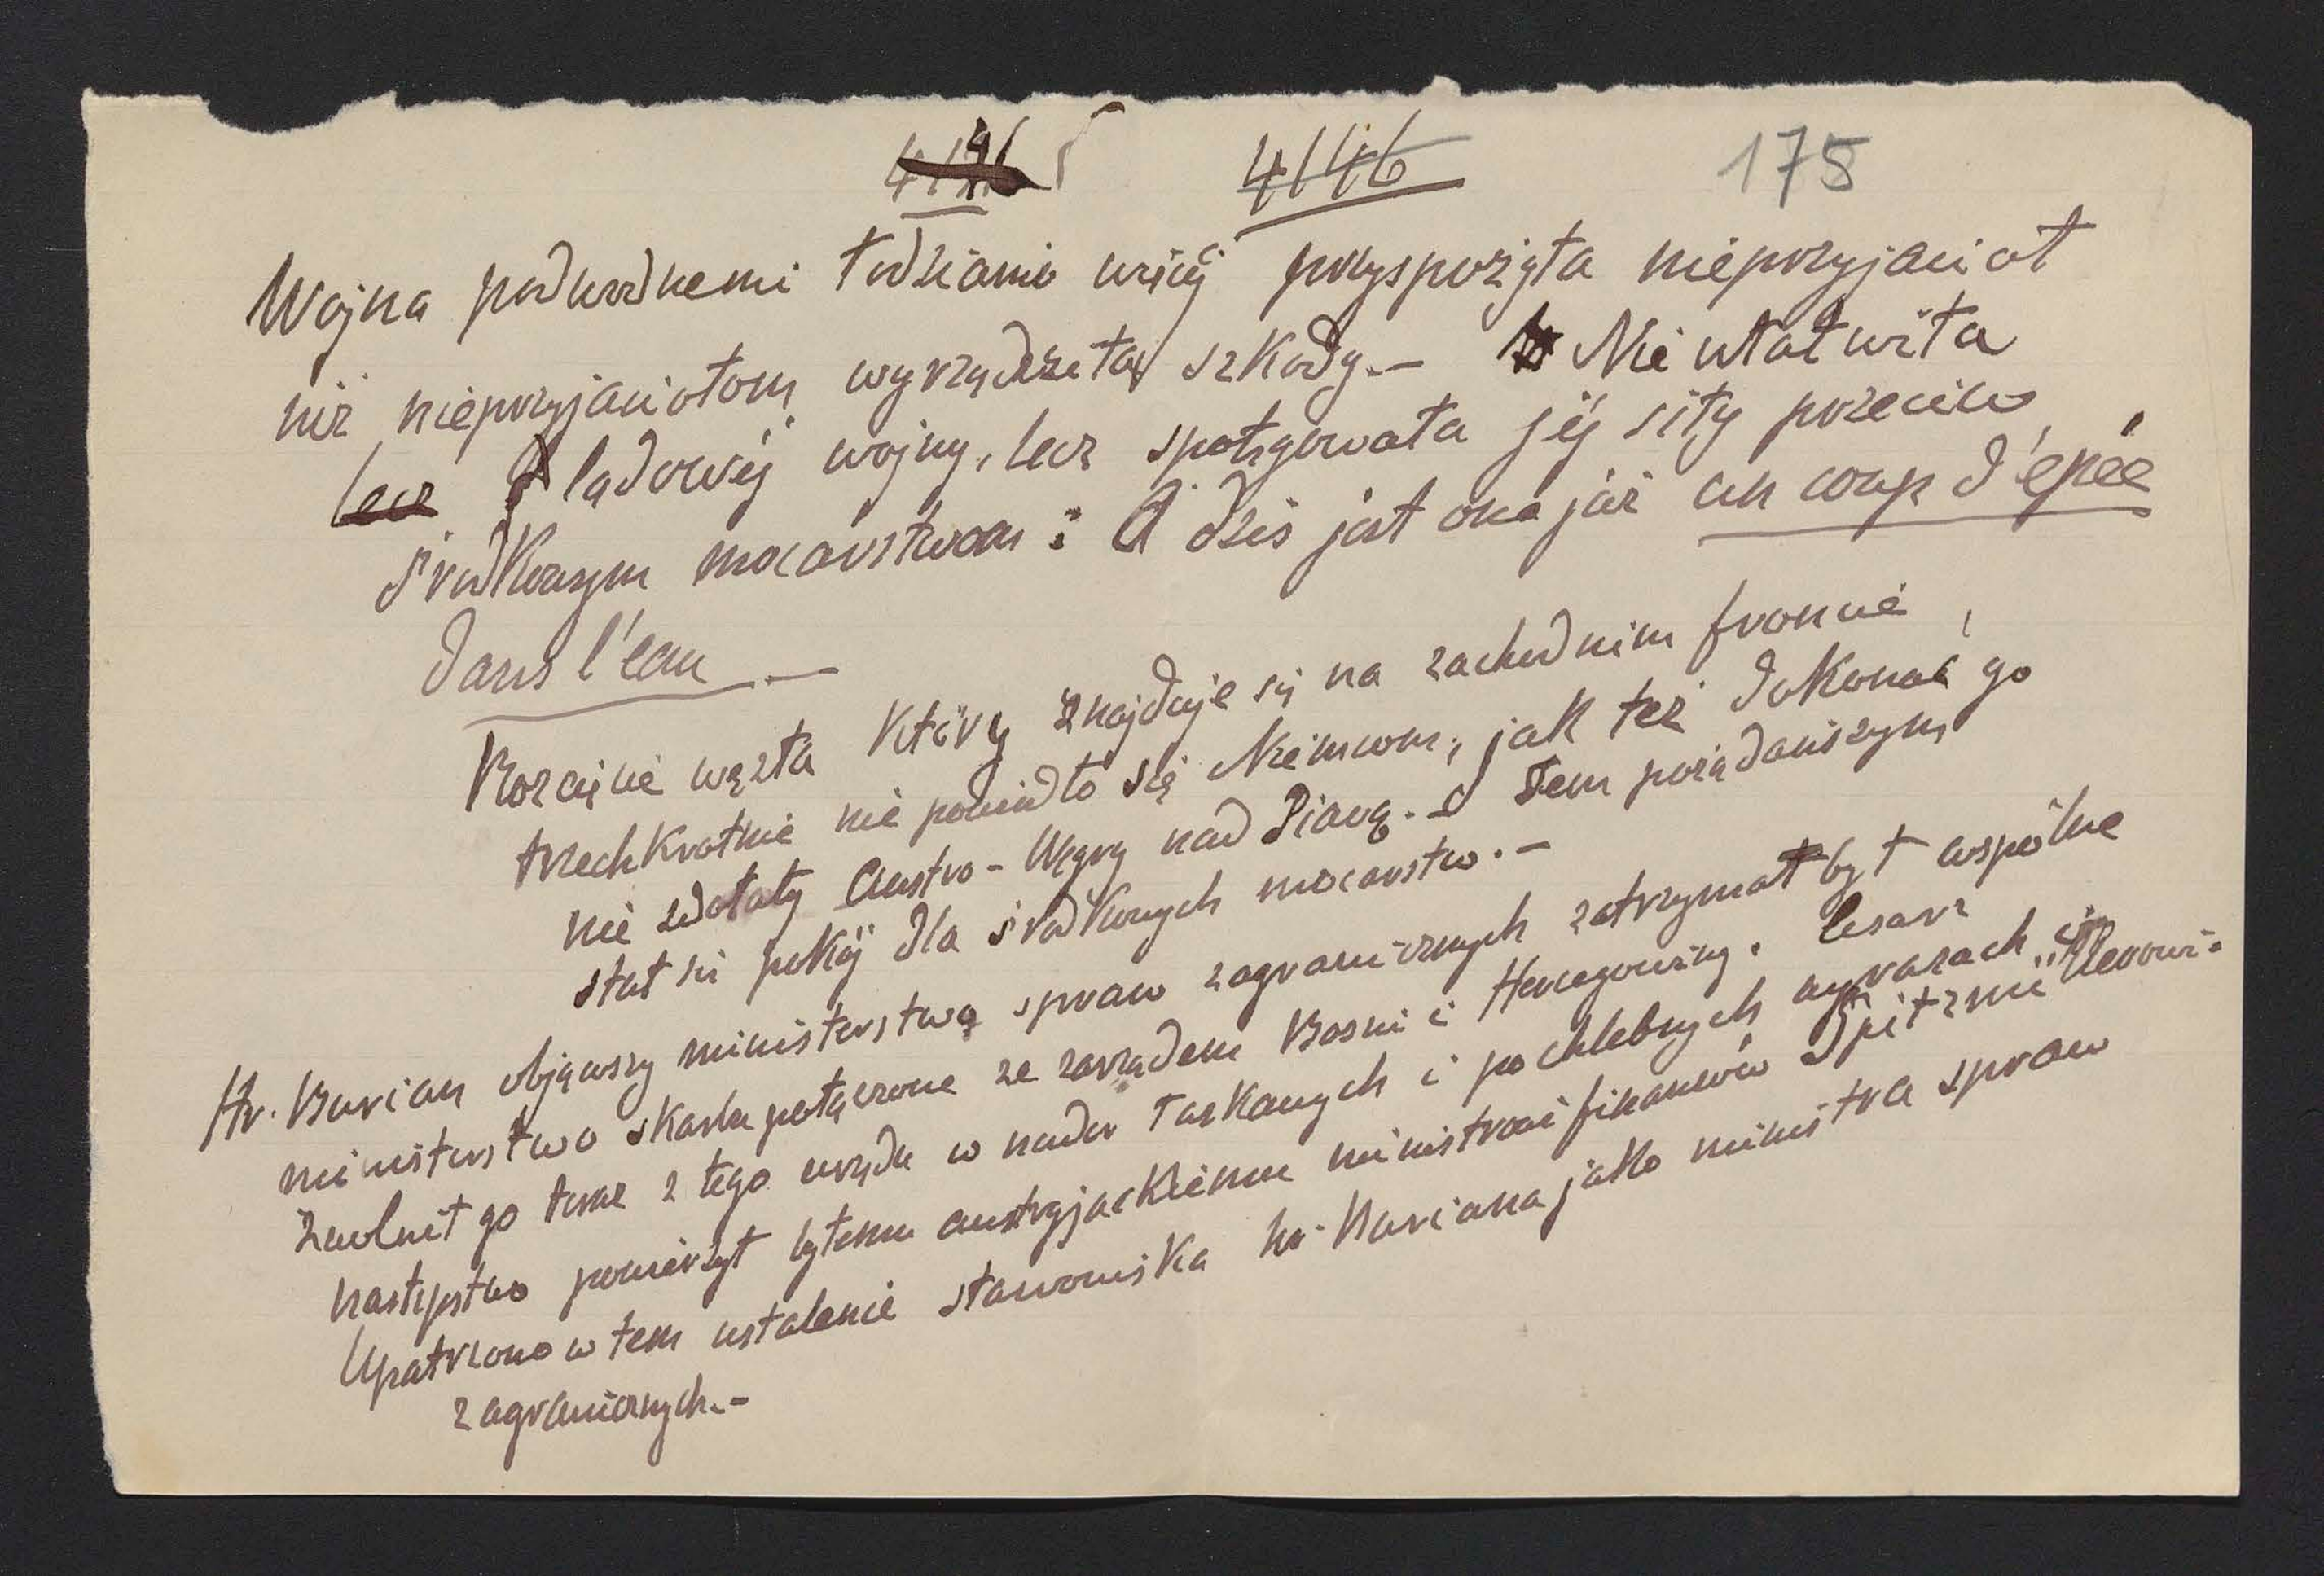 4146 175
Wojna podwodnemi łodziami więcej przysporzyła nieprzyjaciół
niż nieprzyjaciołom wyrządzała szkody.- Nie ułatwiła
lecz lądowéj wojny, lecz spotęgowała jéj siły przeciw
środkowym mocarstwom: A dziś jest ona już un coup d'épée
dans l'eau.-
Rozcięcie węzła który znajduje się na zachodnim froncie,
trzechkrotnie nie powiodło się Niemcom, jak też dokonać go
nie zdołały Austro-Węgry nad Piavą.- Tem pożądańszym
stał się pokój dla środkowych mocarstw.-
Hr. Burian objąwszy ministerstwo spraw zagranicznych zatrzymał był wspólne
ministerstwo skarbu połączone ze zarządem Bosni i Hercegowiny. Cesarz
zwolnił go teraz z tego urzędu w nader łaskawych i pochlebnych wyrazach, a
następstwo powierzył bytemu austryjackiemu ministrowi finansów Spitzmüllerowi.
Upatrzono w tem ustalenie stanowiska hr. Buriana jako ministra spraw
zagranicznych.-